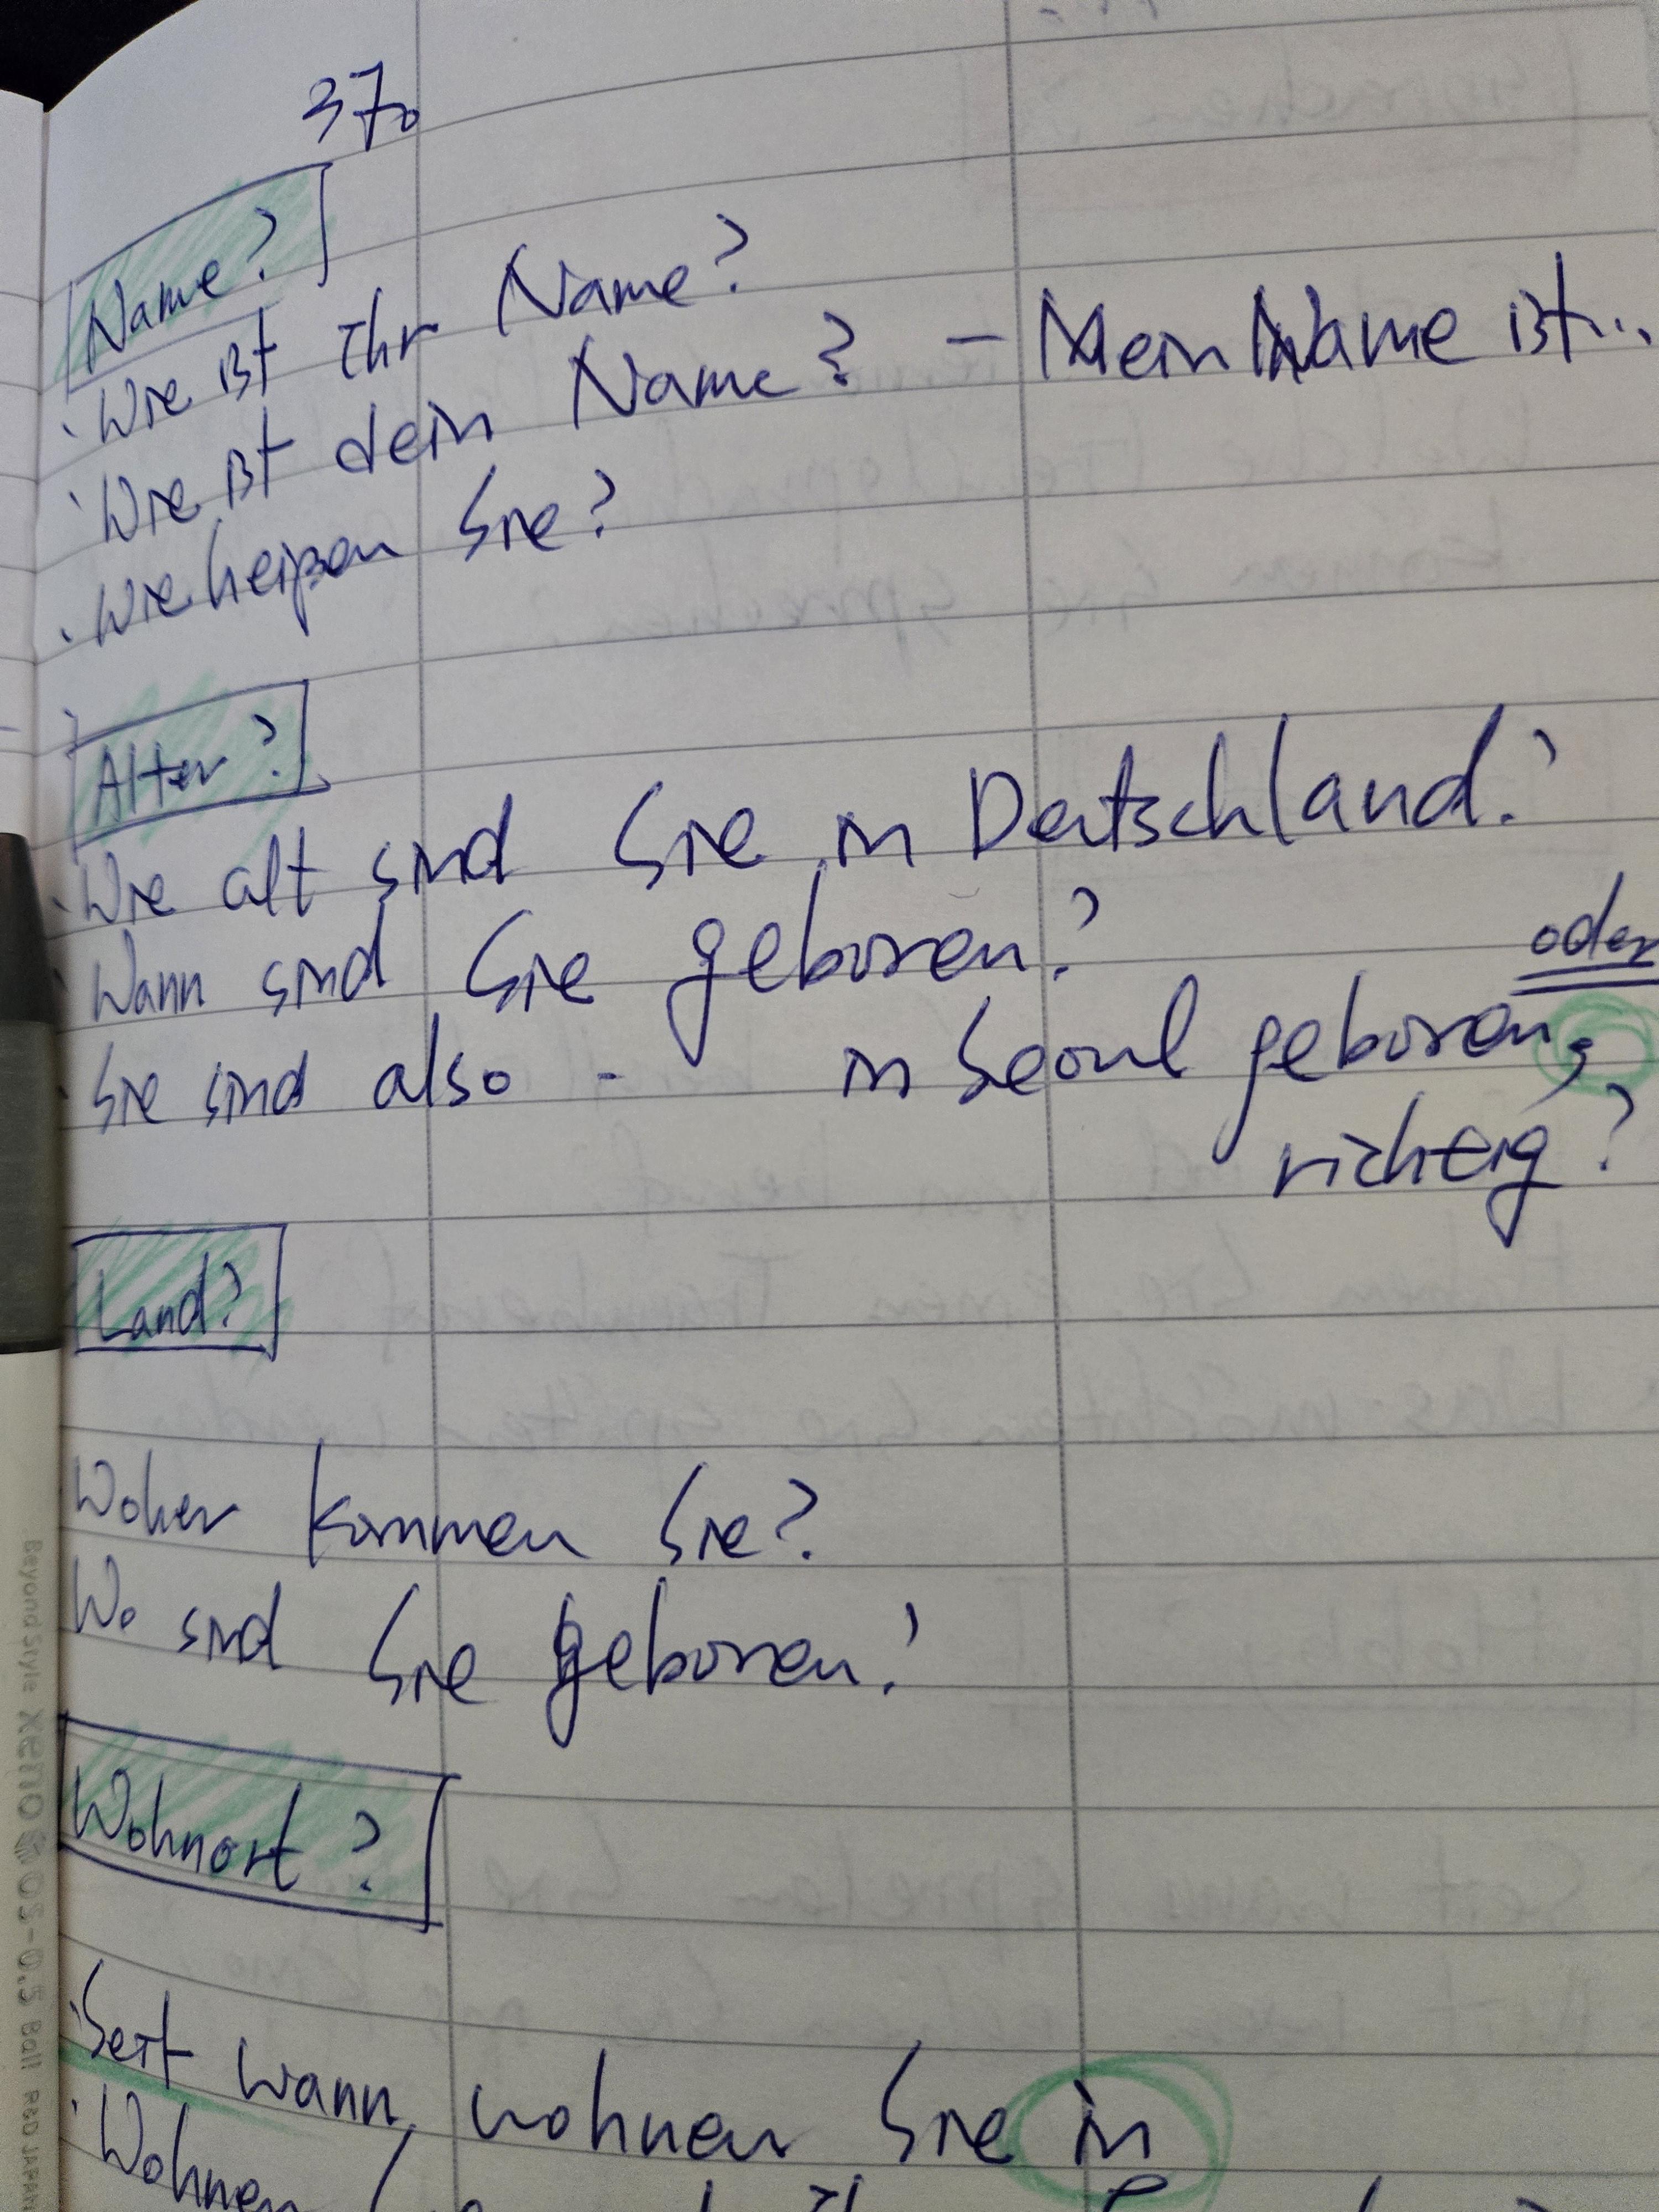 37.
Name?
· Wie ist Ihr Name?
· Wie ist dein Name? – Mein Name ist...
· Wie heißen Sie?
Alter?
· Wie alt sind Sie in Deutschland?
· Wann sind Sie geboren?
oder
· Sie sind also - in Seoul geboren,
richtig?
Land?
Woher kommen Sie?
Wo sind Sie geboren?
Wohnort?
· Seit wann wohnen Sie in
· Wohnen
Beyond Style XENO 03-0.5 Ball R&D JAPAN